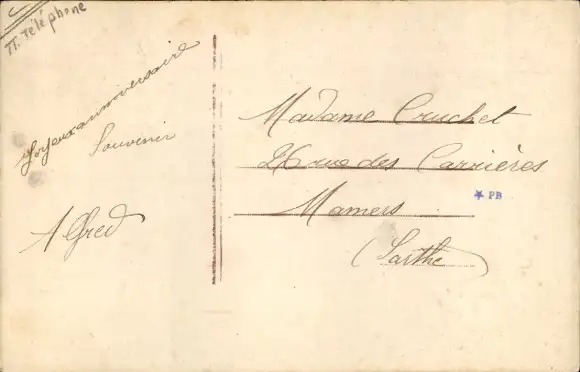 TT. Téléphone
Joyeux anniversaire
Souvenir
Alfred
Madame Cruchet
26 rue des Carrières
Mamers
(Sarthe)
PB